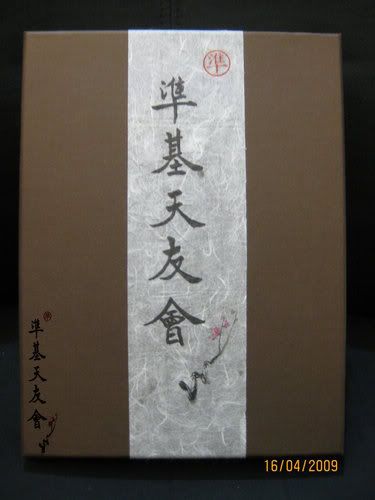 準
準基天友會
準基天友會
16/04/2009